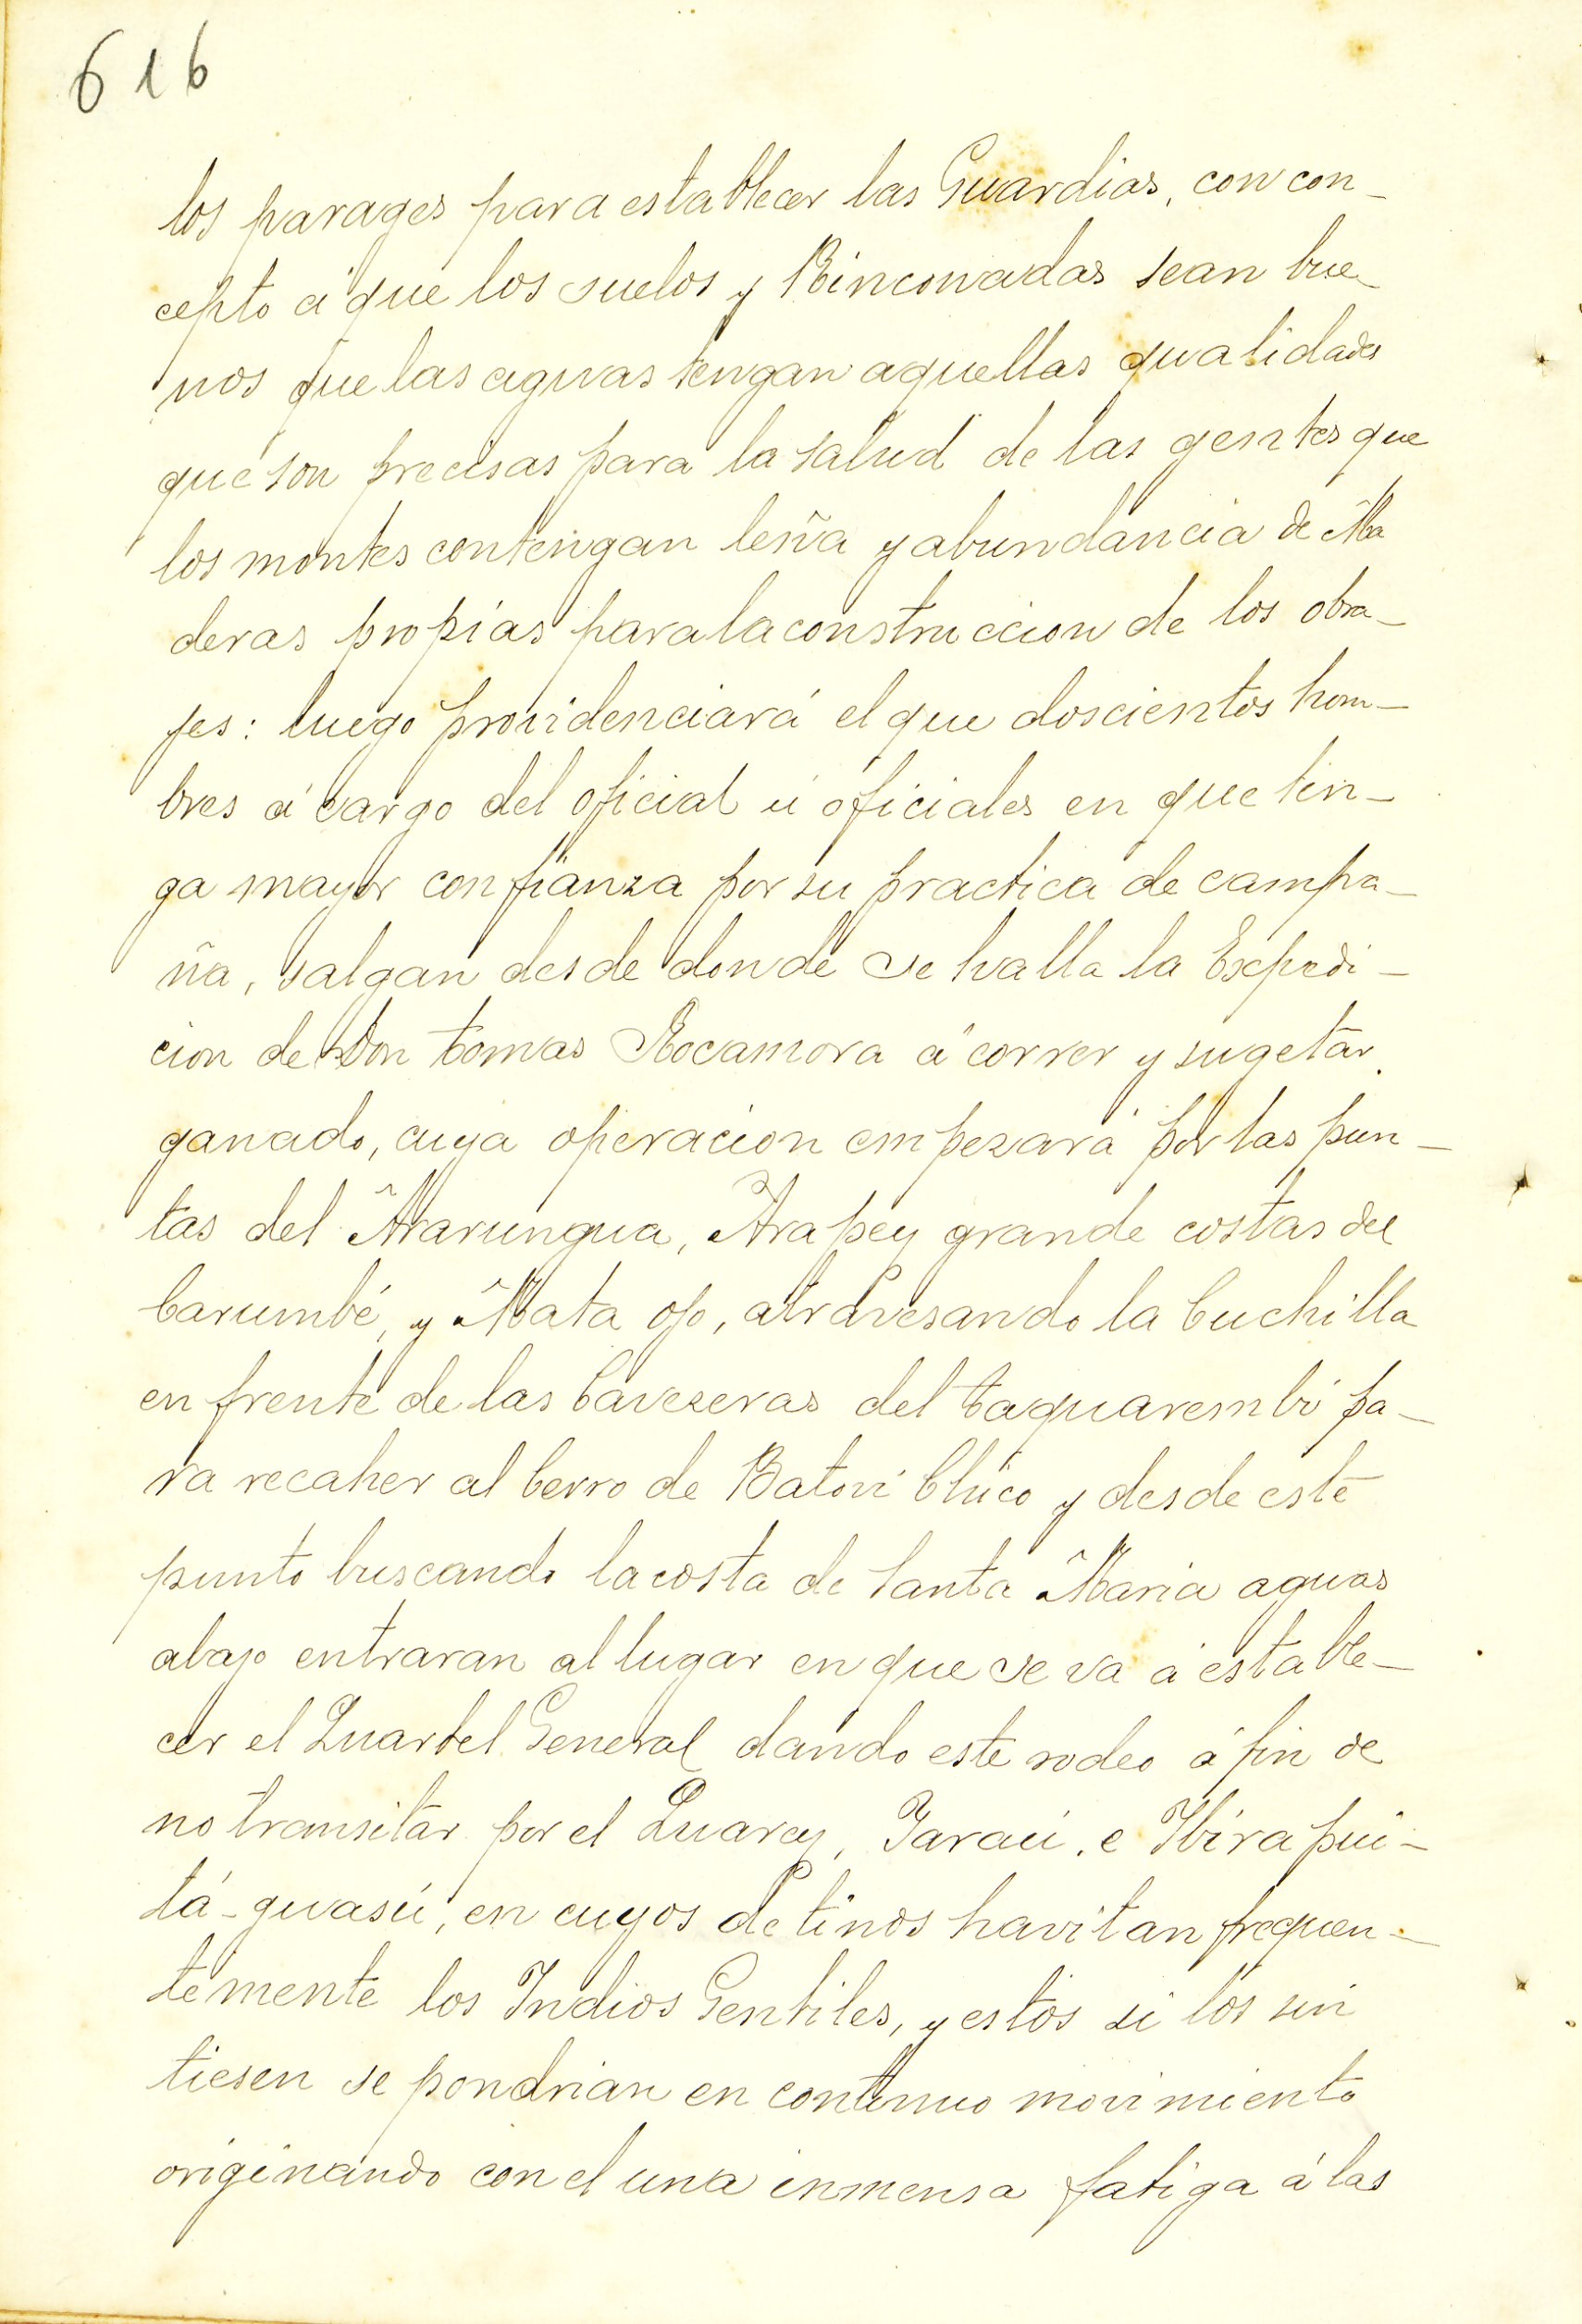 616
los parages para establecer las Guardias, con con-
cepto á que los suelos y Rinconadas sean bue-
nos que las aguas tengan aquellas qualidades
que son precisas para la salud de las gentes que
los montes contengan leña y abundancia de Ma
deras propias para la construccion de los obra-
jes: luego providenciará el que doscientos hom-
bres á cargo del oficial ú oficiales en que ten-
ga mayor confianza por su practica de campa-
ña, salgan desde donde se halla la Expedi-
cion de Don Tomas Rocamora á correr y sugetar
ganado, cuya operacion empezará por las pun-
tas del Marungua, Arapey grande costas del
Carumbé, y Mata ojo, atravesando la Cuchilla
en frente de las Cavezeras del Taquarembó pa-
ra recaher al Cerro de Batoví Chico y desde este
punto buscando la costa de Santa Maria aguas
abajo entraran al lugar en que se va á estable-
cer el Quartel General dando este rodeo á fin de
no transitar por el Quarey, Jaraú, e Ibirapui-
tá-guasú, en cuyos detinos havitan frequen-
temente los Indios Gentiles, y estos si los sin
tiesen se pondrian en continuo movimiento
originando con el una inmensa fatiga á las